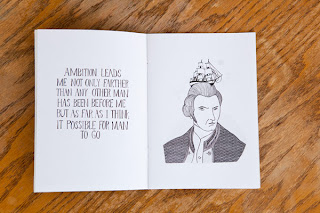 AMBITION LEADS
ME NOT ONLY FARTHER
THAN ANY OTHER MAN
HAS BEEN BEFORE ME
BUT AS FAR AS I THINK
IT POSSIBLE FOR MAN
TO GO